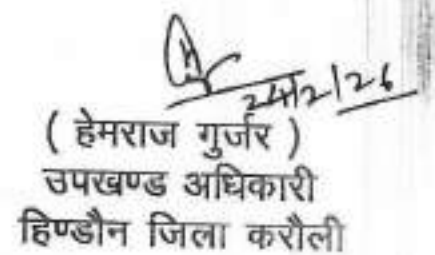 24/2/26
( हेमराज गुर्जर )
उपखण्ड अधिकारी
हिण्डौन जिला करौली